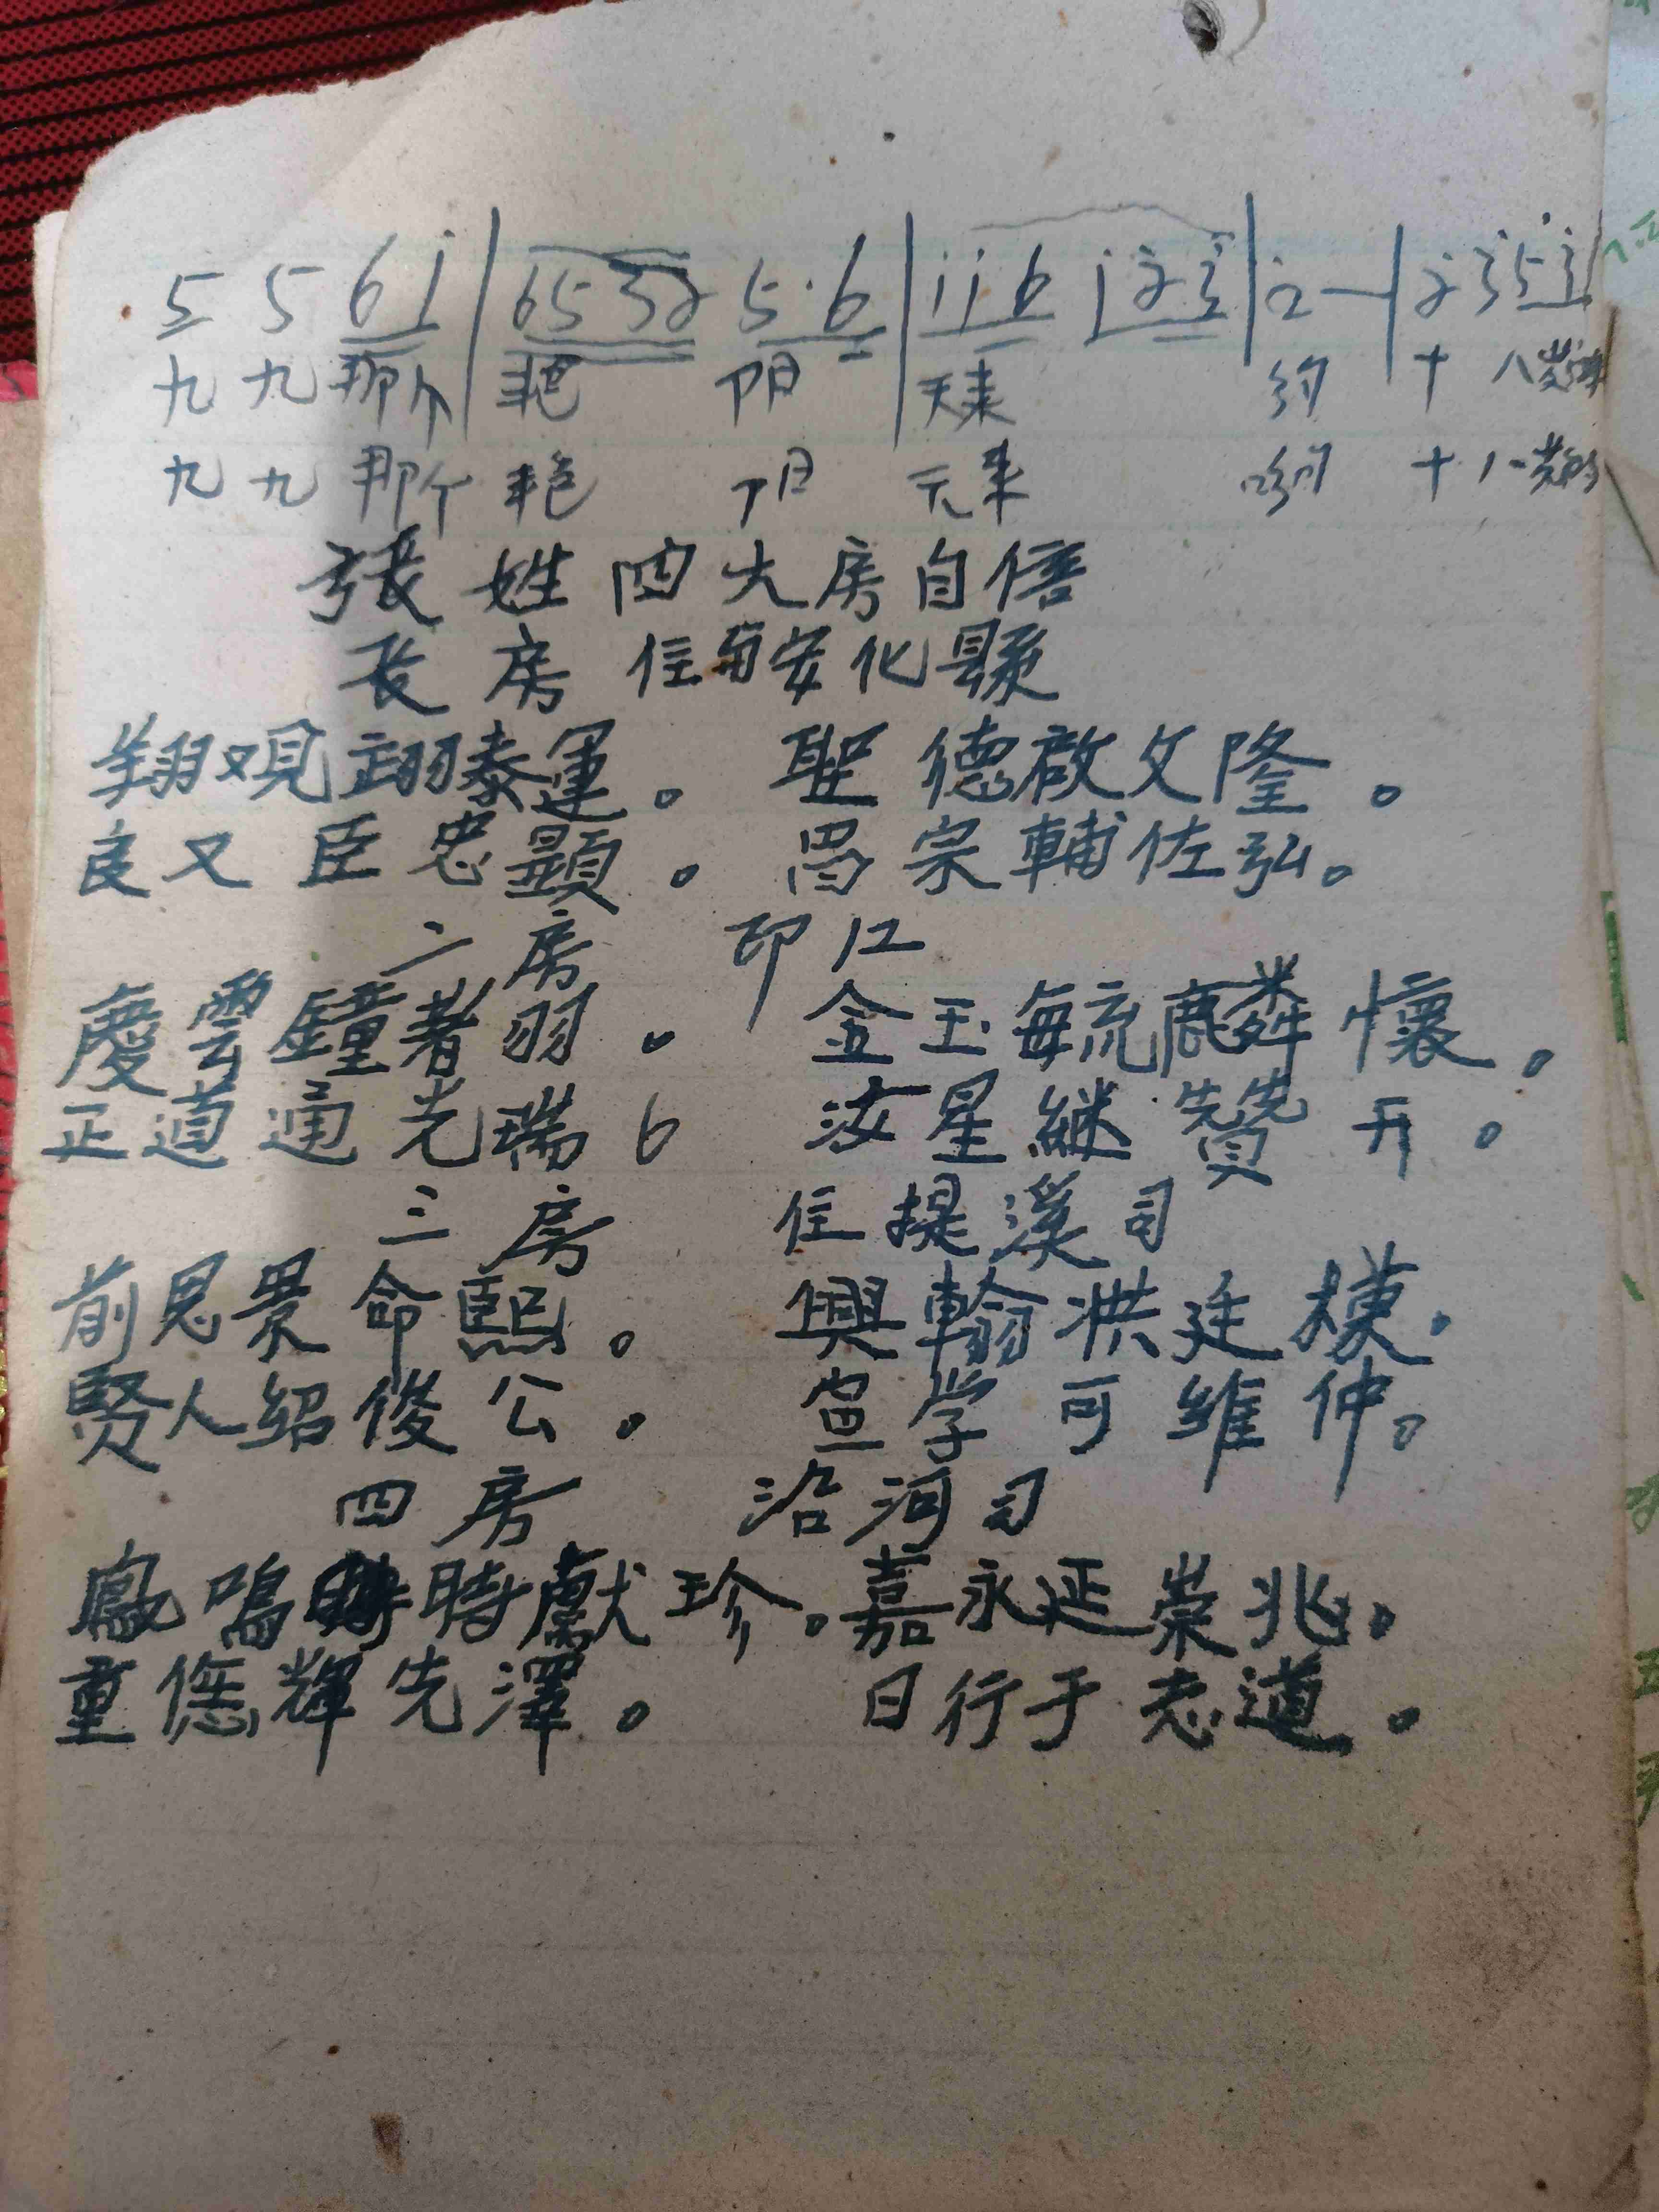 5 5 6 i | 65 32 5·6 | i i 6 i 2 3 | 2 — | 2 3 5 3
九 九 那个 艳 阳 天来 约 十 八岁
九 九 那个 艳 阳 天来 哟 十 八岁的
張 姓 四 大 房 自
长 房 住 安 化 縣
翔 观 翊 泰 運。 聖 德 啟 文 隆。
良 又 臣 忠 顕。 宗 輔 佐 弘。
二 房 印 江
慶 雲 鐘 著 羽。 金 玉 毓 麟 懷。
正 道 通 光 瑞。 汝 星 継 贊 开。
三 房 住 提 溪 司
前 思 景 命 熙。 興 翰 洪 廷 模。
賢 人 紹 俊 公。 宣 学 可 維 仲。
四 房 沿 河 司
鳳 鳴 時 獻 珍。 嘉 永 延 崇 兆。
重 德 輝 先 澤。 日 行 于 志 道。